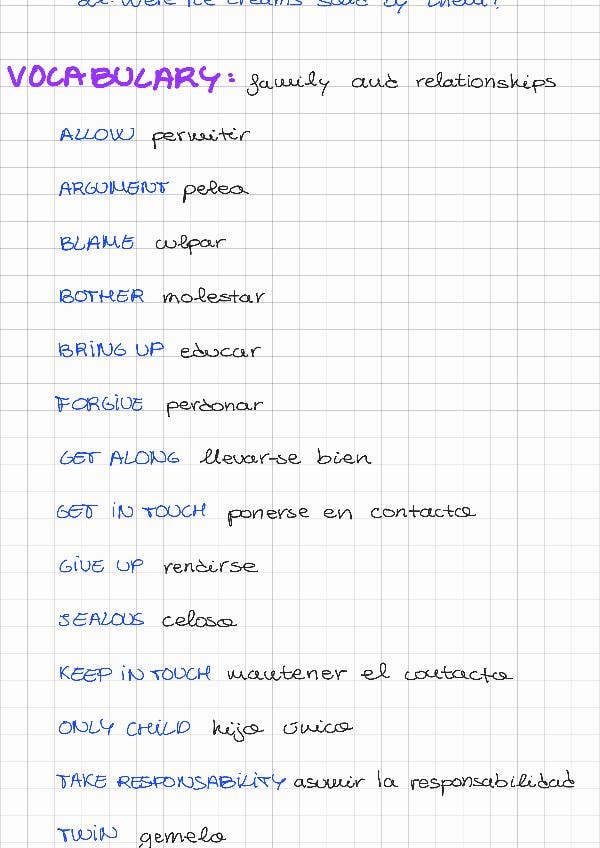 VOCABULARY: family and relationships
ALLOW permitir
ARGUMENT pelea
BLAME culpar
BOTHER molestar
BRING UP educar
FORGIVE perdonar
GET ALONG llevar-se bien
GET IN TOUCH ponerse en contacto
GIVE UP rendirse
SEALOUS celoso
KEEP IN TOUCH mantener el contacto
ONLY CHILD hijo único
TAKE RESPONSABILITY asumir la responsabilidad
TWIN gemelo